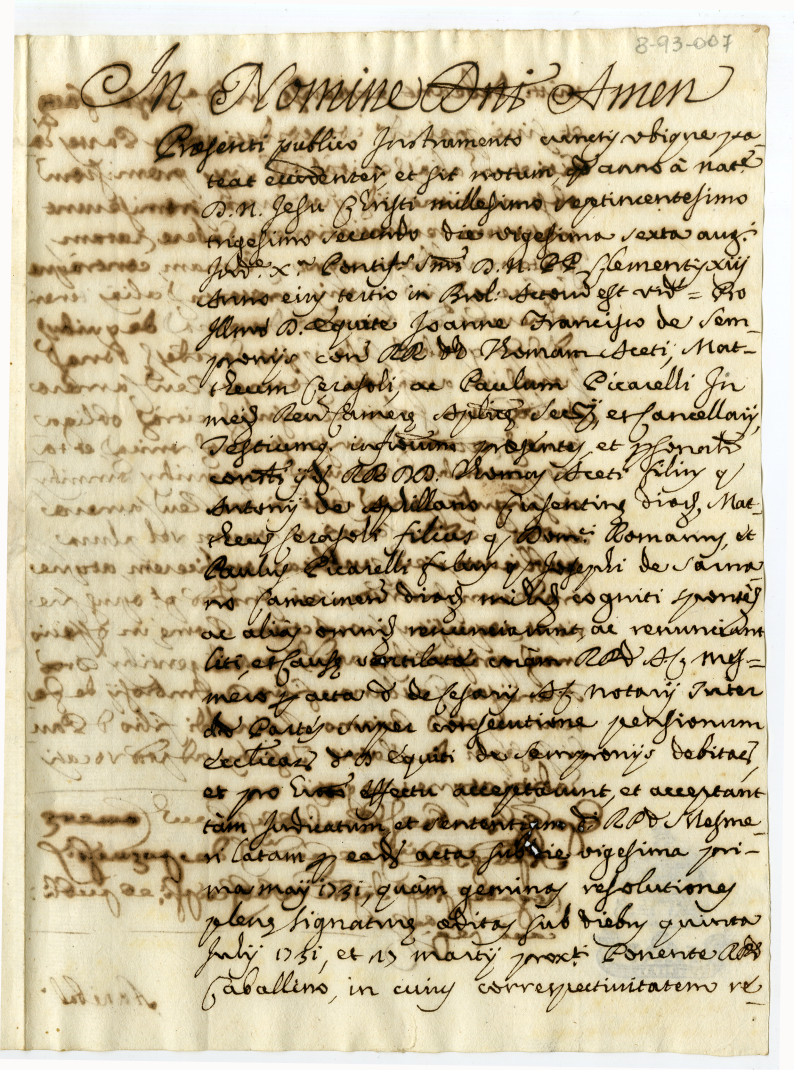 8-93-007
In Nomine Dni Amen
Præsenti publico Instrumento cunctis ubique pa-
teat evidenter, et sit notum, qd anno à natte
D. N. Jesu Christi millesimo septincentesimo
trigesimo secundo die vigesima sexta aug.i
Indne X.a Pontifs Smi D. N. PP. Clementis XII
Anno eius tertio in Brol: Actum est = Pro
Illmo D. Equite Joanne Francisco de Sem-
pronijs con RR. DD. Thomam Aceti, Mat-
theum Cerasoli, ac Paulum Picarelli In
mei Rev. Cameræ Aplicæ Secrij, et Cancellarij,
Testiumq. infrorum præsentes, et psonalr
constti RR. DD. Thomas Aceti filius q
Antonij de Consentinæ dioc, Mat-
theus Cerasoli filius q Domci Romanus, et
Paulus Picarelli filius q Josephi de Sarna
no Camerinen dioc mihi cogniti sponte,
ac alias omni renunciarunt, ac renunciant
liti, et Causæ ventilatæ coram RPD A. C. Mes=
mero p acta D. de Cesarijs A. C. notarij Inter
das Partes super consecutione pensionum
Eccticar. do D. Equiti de Sempronijs debitar,
et pro effectu acceptarunt, et acceptant
tàm Judicatum, et sententiam RPD Mesme-
ri latam p ead acta sub die vigesima pri-
ma maij 1731, quàm geminas resolutiones
plenæ signaturæ editas sub diebus quinta
Julij 1731, et 17 martij proxi Ponente RPD
Caballino, in cuius correspectivitatem re